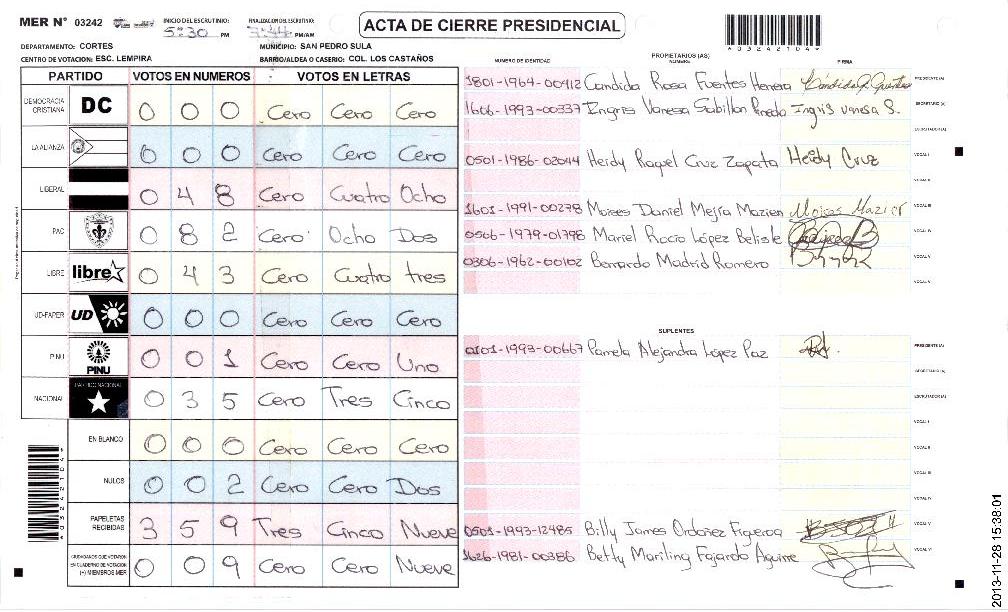 MER N° 03242
INICIO DEL ESCRUTINIO: 5:30 PM
FINALIZACION DEL ESCRUTINIO: PM/AM
ACTA DE CIERRE PRESIDENCIAL
03242104
DEPARTAMENTO: CORTES
MUNICIPIO: SAN PEDRO SULA
CENTRO DE VOTACION: ESC. LEMPIRA
BARRIO/ALDEA O CASERIO: COL. LOS CASTAÑOS
PARTIDO VOTOS EN NUMEROS VOTOS EN LETRAS
DEMOCRACIA CRISTIANA DC 0 0 0 Cero Cero Cero
LA ALIANZA 0 0 0 Cero Cero Cero
LIBERAL 0 4 8 Cero Cuatro Ocho
PAC 0 8 2 Cero Ocho Dos
LIBRE libre 0 4 3 Cero Cuatro tres
UD-FAPER UD 0 0 0 Cero Cero Cero
PINU PINU 0 0 1 Cero Cero Uno
NACIONAL PARTIDO NACIONAL 0 3 5 Cero Tres Cinco
EN BLANCO 0 0 0 Cero Cero Cero
NULOS 0 0 2 Cero Cero Dos
PAPELETAS RECIBIDAS 3 5 9 Tres Cinco Nueve
CIUDADANOS QUE VOTARON EN CUADERNO DE VOTACION (+) MIEMBROS MER 0 0 9 Cero Cero Nueve
PROPIETARIOS (AS)
NUMERO DE IDENTIDAD NOMBRE FIRMA
1801-1964-00412 Candida Rosa Fuentes Herrera PRESIDENTE (A)
1606-1993-00337 Ingris Vanesa Sabillon Pineda Ingris Vanesa S. SECRETARIO (A)
ESCRUTADOR (A)
0501-1986-02044 Heidy Raquel Cruz Zapata Heidy Cruz VOCAL I
VOCAL II
1601-1991-00278 Moises Daniel Mejía Mazier Moises Mazier VOCAL III
0506-1979-01798 Mariel Rocío López Belisle VOCAL IV
0306-1962-00102 Bernardo Madrid Romero VOCAL V
SUPLENTES
0101-1993-00667 Pamela Alejandra López Paz PRESIDENTE (A)
SECRETARIO (A)
ESCRUTADOR (A)
VOCAL I
VOCAL II
VOCAL III
VOCAL IV
0501-1993-12485 Billy James Ordoñez Figueroa VOCAL V
1626-1981-00386 Betty Mariling Fajardo Aguirre VOCAL VI
2013-11-28 15:38:01